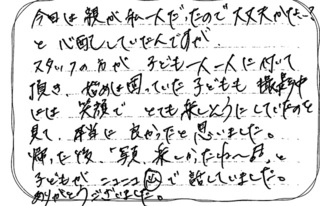 今日は親が私一人だったので大丈夫かな…?
と心配していたんですが、
スタッフの方が子ども一人一人に付いて
頂き、始めは固っていた子どもも撮影中
には笑顔でとても楽しそうにしていたのを
見て、本当に良かったと思いました。
帰った後、「写真、楽しかったね〜♬」と
子どもがニコニコで話していました。
ありがとうございました。